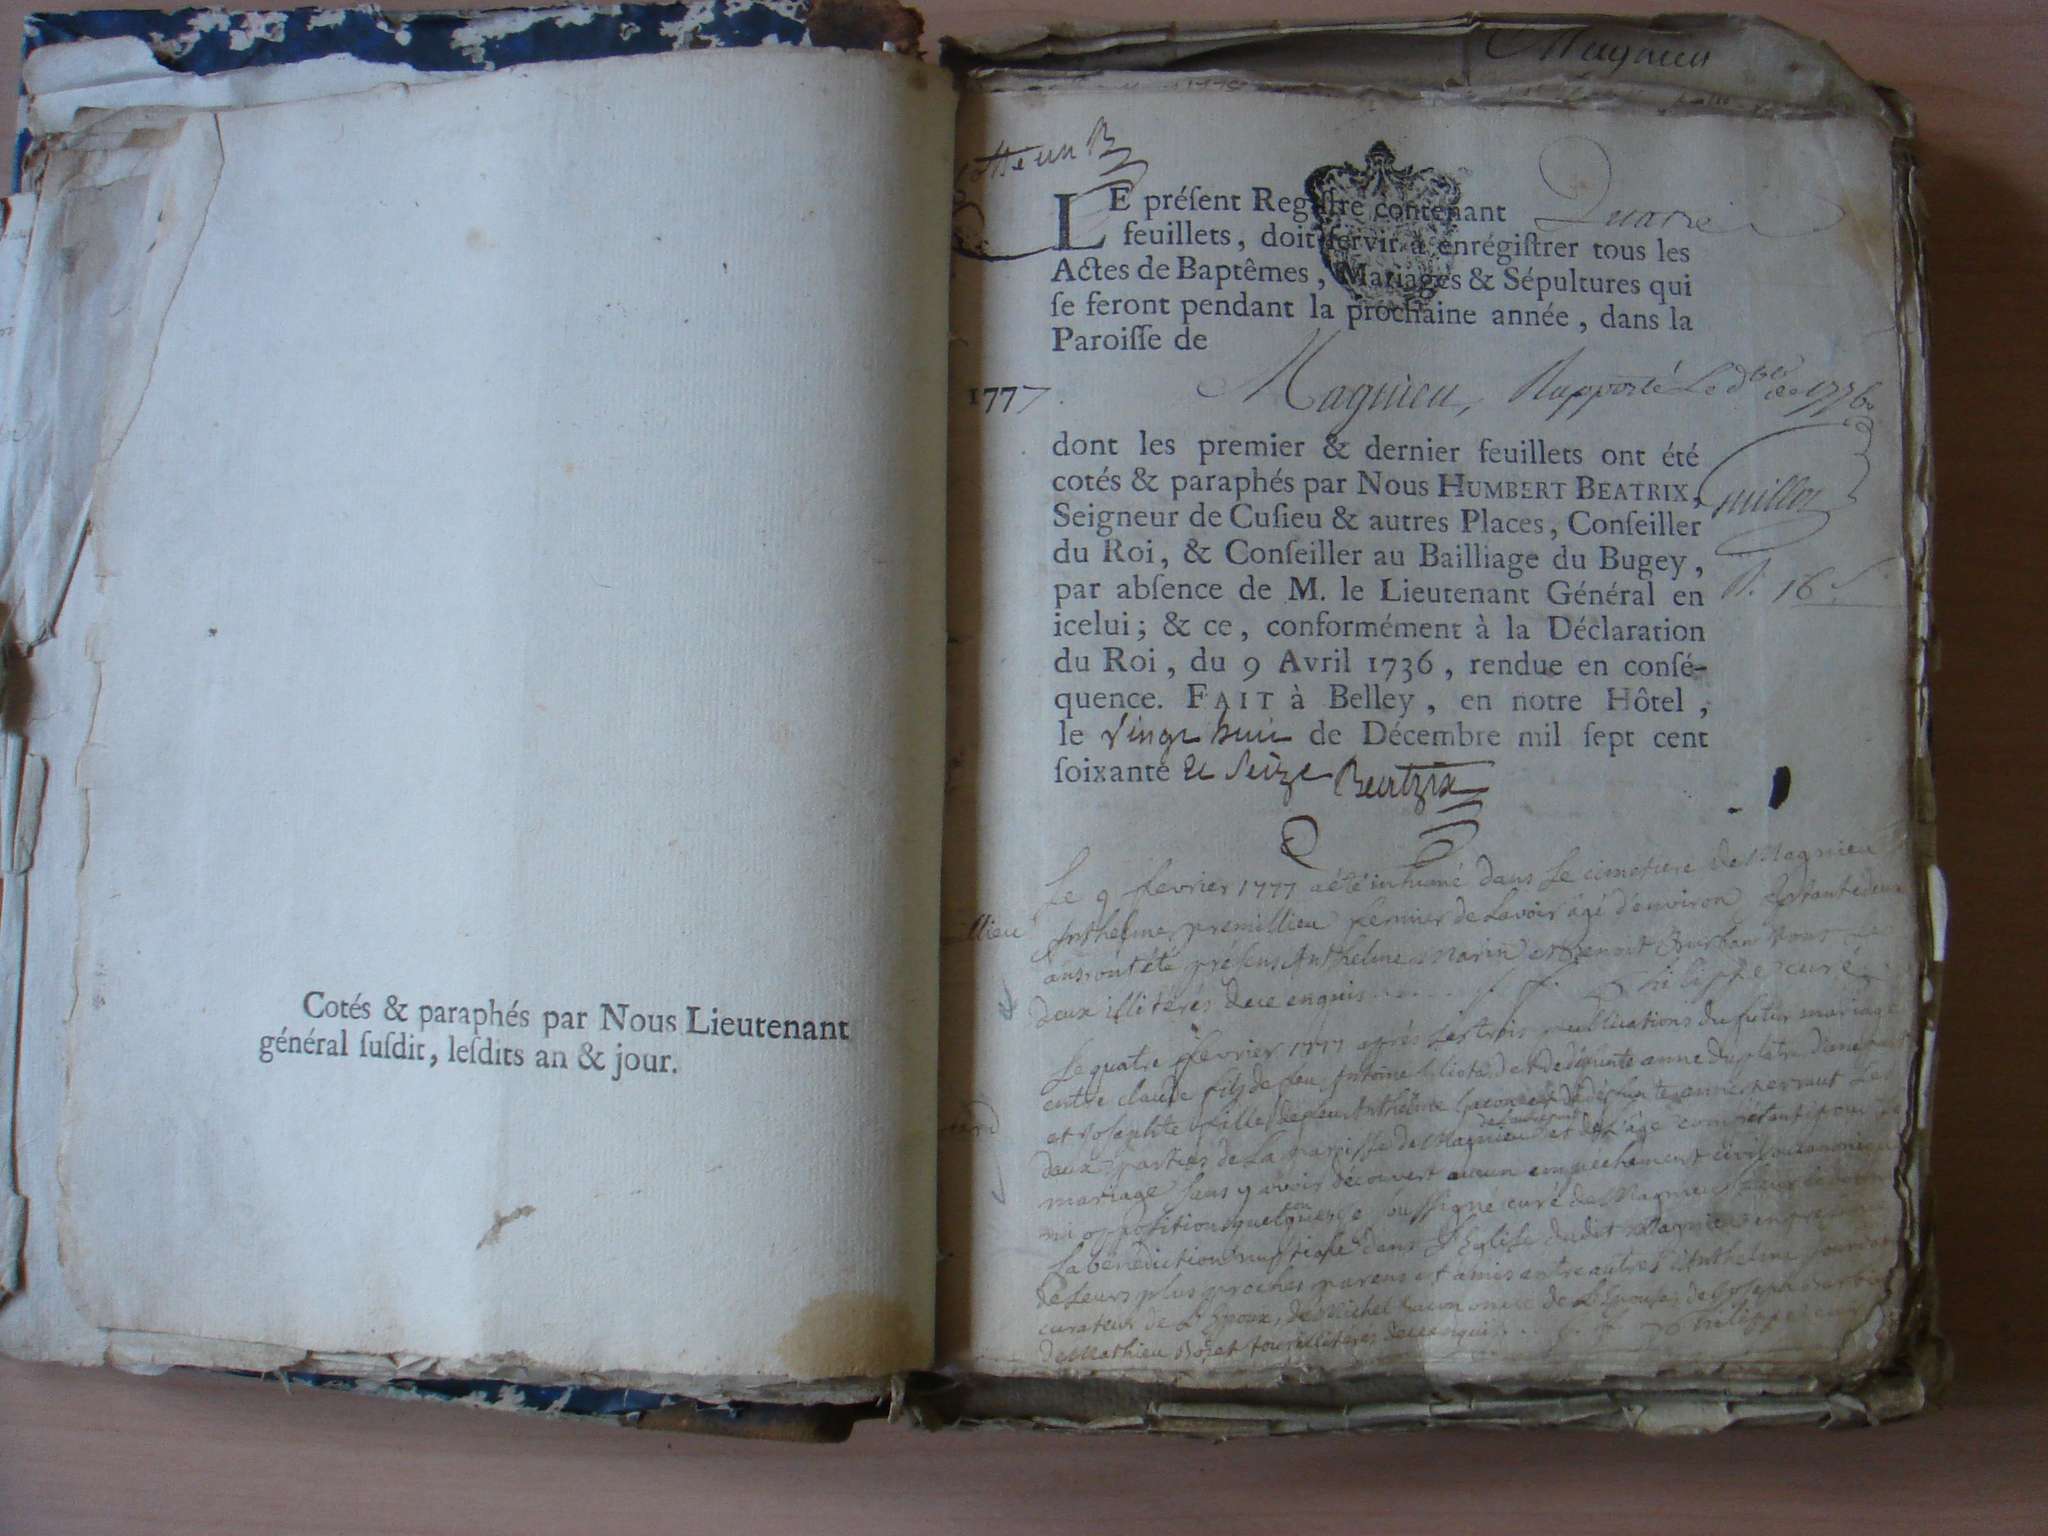 Cotés & paraphés par Nous Lieutenant
général ſuſdit, leſdits an & jour.
Magnieu
Cotte un B
LE préſent Regiſtre contenant Quatre
feuillets, doit ſervir à enrégiſtrer tous les
Actes de Baptêmes, Mariages & Sépultures qui
ſe feront pendant la prochaine année, dans la
Paroiſſe de
1777. Magnieu, Rapporté Le 1776
dont les premier & dernier feuillets ont été
cotés & paraphés par Nous HUMBERT BEATRIX,
Seigneur de Cuſieu & autres Places, Conſeiller
du Roi, & Conſeiller au Bailliage du Bugey,
par abſence de M. le Lieutenant Général en
icelui; & ce, conformément à la Déclaration
du Roi, du 9 Avril 1736, rendue en conſé-
quence. FAIT à Belley, en notre Hôtel,
le vingt huit de Décembre mil ſept cent
ſoixante et Seize Beatrix
R. 16 ſ.
Le 9 fevrier 1777 a été inhumé dans le cimetiere de Magnieu
Anthelme premillieu fermier de Lavoir âgé d'environ septante deux
ans ont été présens Anthelme Marin et Benoit tous les
deux illitérés de ce enquis Philippe curé
Le quatre fevrier 1777 après les trois publications du futur mariage
entre claude fils de feu Antoine et de défunte anne Duplatre d'une part
et Josephte fille de feu Anthelme et de défunte anne perraut les
deux parties de la paroisse de Magnieu et de l'âge compétant pour le
mariage sans y avoir découvert aucun empéchement civil ou canonique
ni opposition quelconque je soussigné curé de Magnieu leur ai donné
la bénédiction nuptiale dans l'Eglise dudit Magnieu en présence
de leurs plus proches parens et amis entre autres d'Anthelme
curateur de l'Epoux, de Michel oncle de l'Epouse, de Joseph
de Mathieu tous illitérés de ce enquis Philippe curé